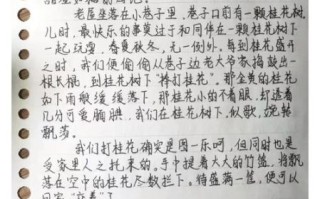 老屋坐落在小巷子里,巷子口图有一颗桂花树,
儿时,最快乐的事莫过于和同伴在一颗桂花树下
一起玩耍,春夏秋冬,无一例外。每到桂花盛开
之时,我们便偷偷从巷子边老大爷家拖敲出一
根长棍,到桂花树下"棒打桂花"。那金黄的桂花
如下雨般缓缓落下,那桂花小的不着眼,却透着
几分可爱胸腆,我们在桂花树下,似歌,婉转
飘荡。
我们打桂花确实是图一乐呵,但同时也是
受家里人之托来的。手中提着大大的竹篮,将飘
落在空中的桂花尽数拦下。待篮满一筐,便可以